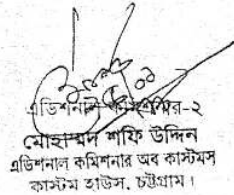 এডিশনাল কমিশনার-২
মোহাম্মদ শফি উদ্দিন
এডিশনাল কমিশনার অব কাস্টমস
কাস্টম হাউস, চট্টগ্রাম।